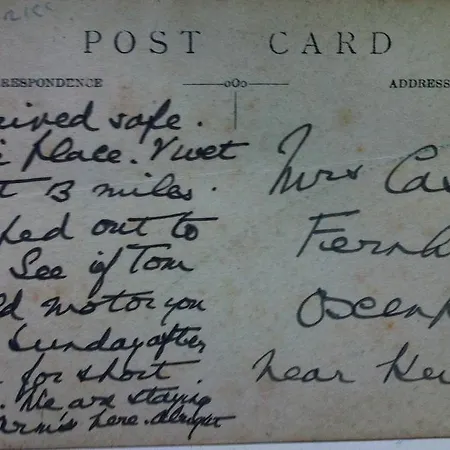 POST CARD
RESPONDENCE
ADDRESS
ived safe.
place. V wet
t 13 miles.
ked out to
See if Tom
ld motor you
Sunday after
for short.
We are staying
arms here. alright
Mrs Ca
Fernh
Oscen
near Ke